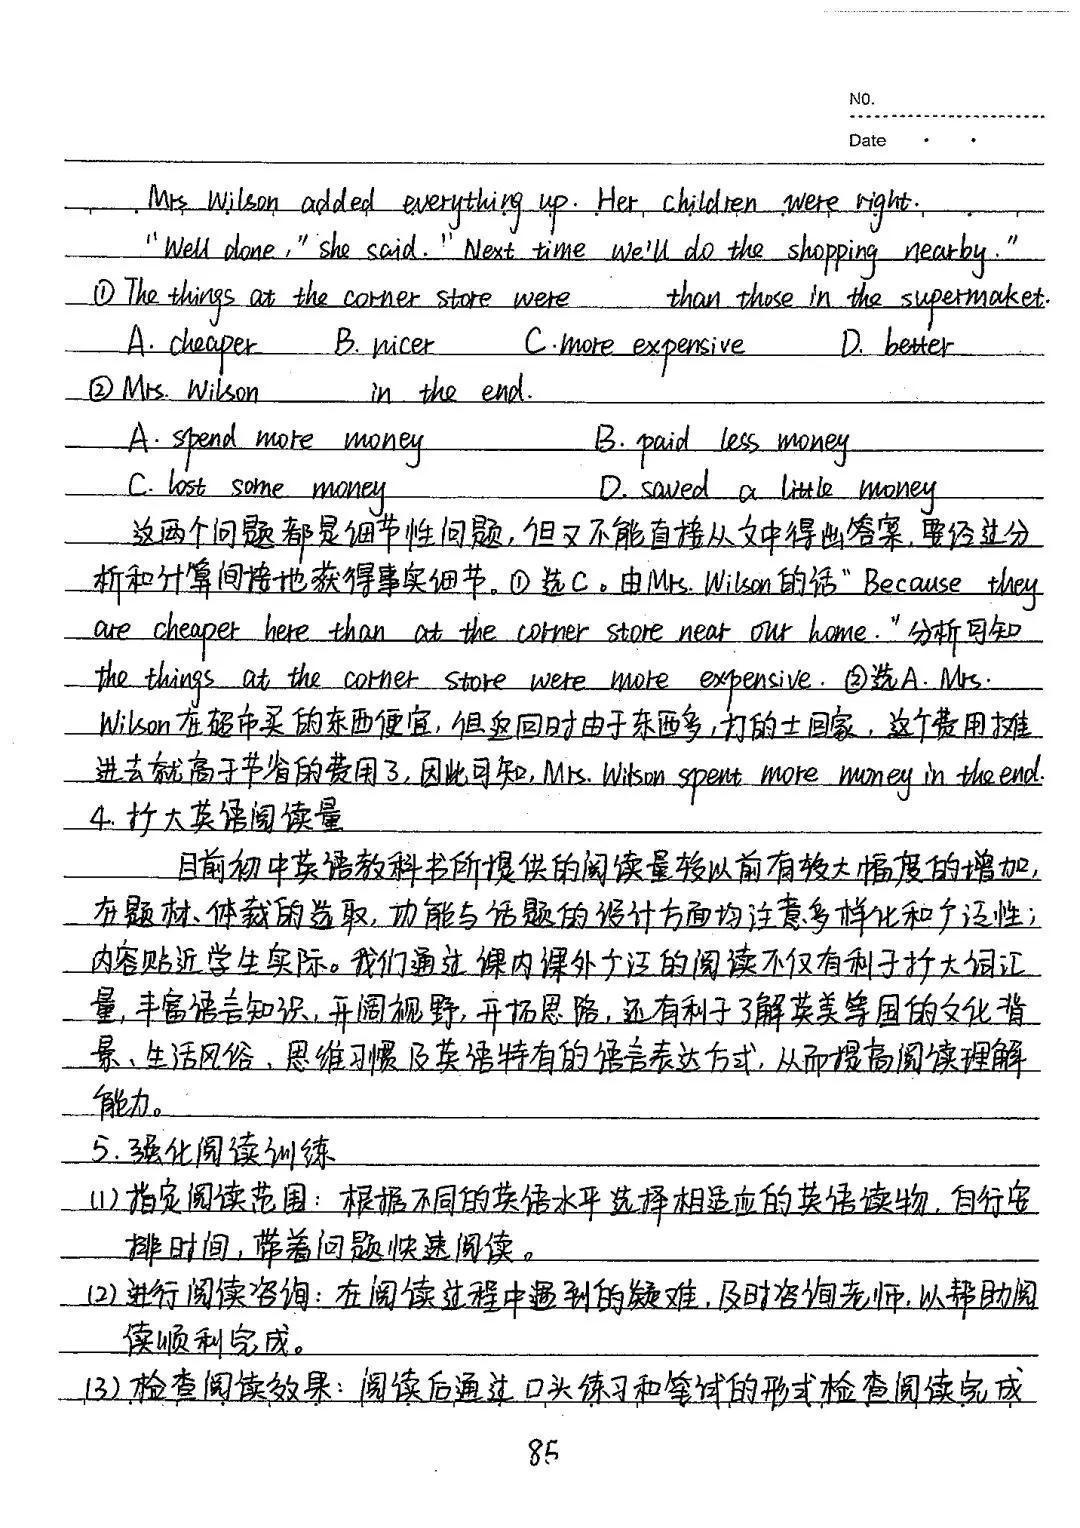 NO.
Date
Mrs Wilson added everything up. Her children were right.
"Well done," she said. "Next time we'll do the shopping nearby."
① The things at the corner store were than those in the supermaket.
A. cheaper B. nicer C. more expensive D. better
② Mrs. Wilson in the end.
A. spend more money B. paid less money
C. lost some money D. saved a little money
这两个问题都是细节性问题，但又不能直接从文中得出答案，要经过分
析和计算间接地获得事实细节。①选C。由Mrs. Wilson的话"Because they
are cheaper here than at the corner store near our home."分析可知
the things at the corner store were more expensive. ②选A. Mrs.
Wilson在超市买的东西便宜，但返回时由于东西多，打的士回家，这个费用摊
进去就高于节省的费用了，因此可知，Mrs. Wilson spent more money in the end.
4. 扩大英语阅读量
目前初中英语教科书所提供的阅读量较以前有较大幅度的增加，
在题材、体裁的选取，功能与话题的设计方面均注意多样化和广泛性；
内容贴近学生实际。我们通过课内课外广泛的阅读不仅有利于扩大词汇
量，丰富语言知识，开阔视野，开拓思路，还有利于了解英美等国的文化背
景、生活风俗、思维习惯及英语特有的语言表达方式，从而提高阅读理解
能力。
5. 强化阅读训练
(1) 指定阅读范围：根据不同的英语水平选择相适应的英语读物，自行安
排时间，带着问题快速阅读。
(2) 进行阅读咨询：在阅读过程中遇到的疑难，及时咨询老师，以帮助阅
读顺利完成。
(3) 检查阅读效果：阅读后通过口头练习和笔试的形式检查阅读完成
85